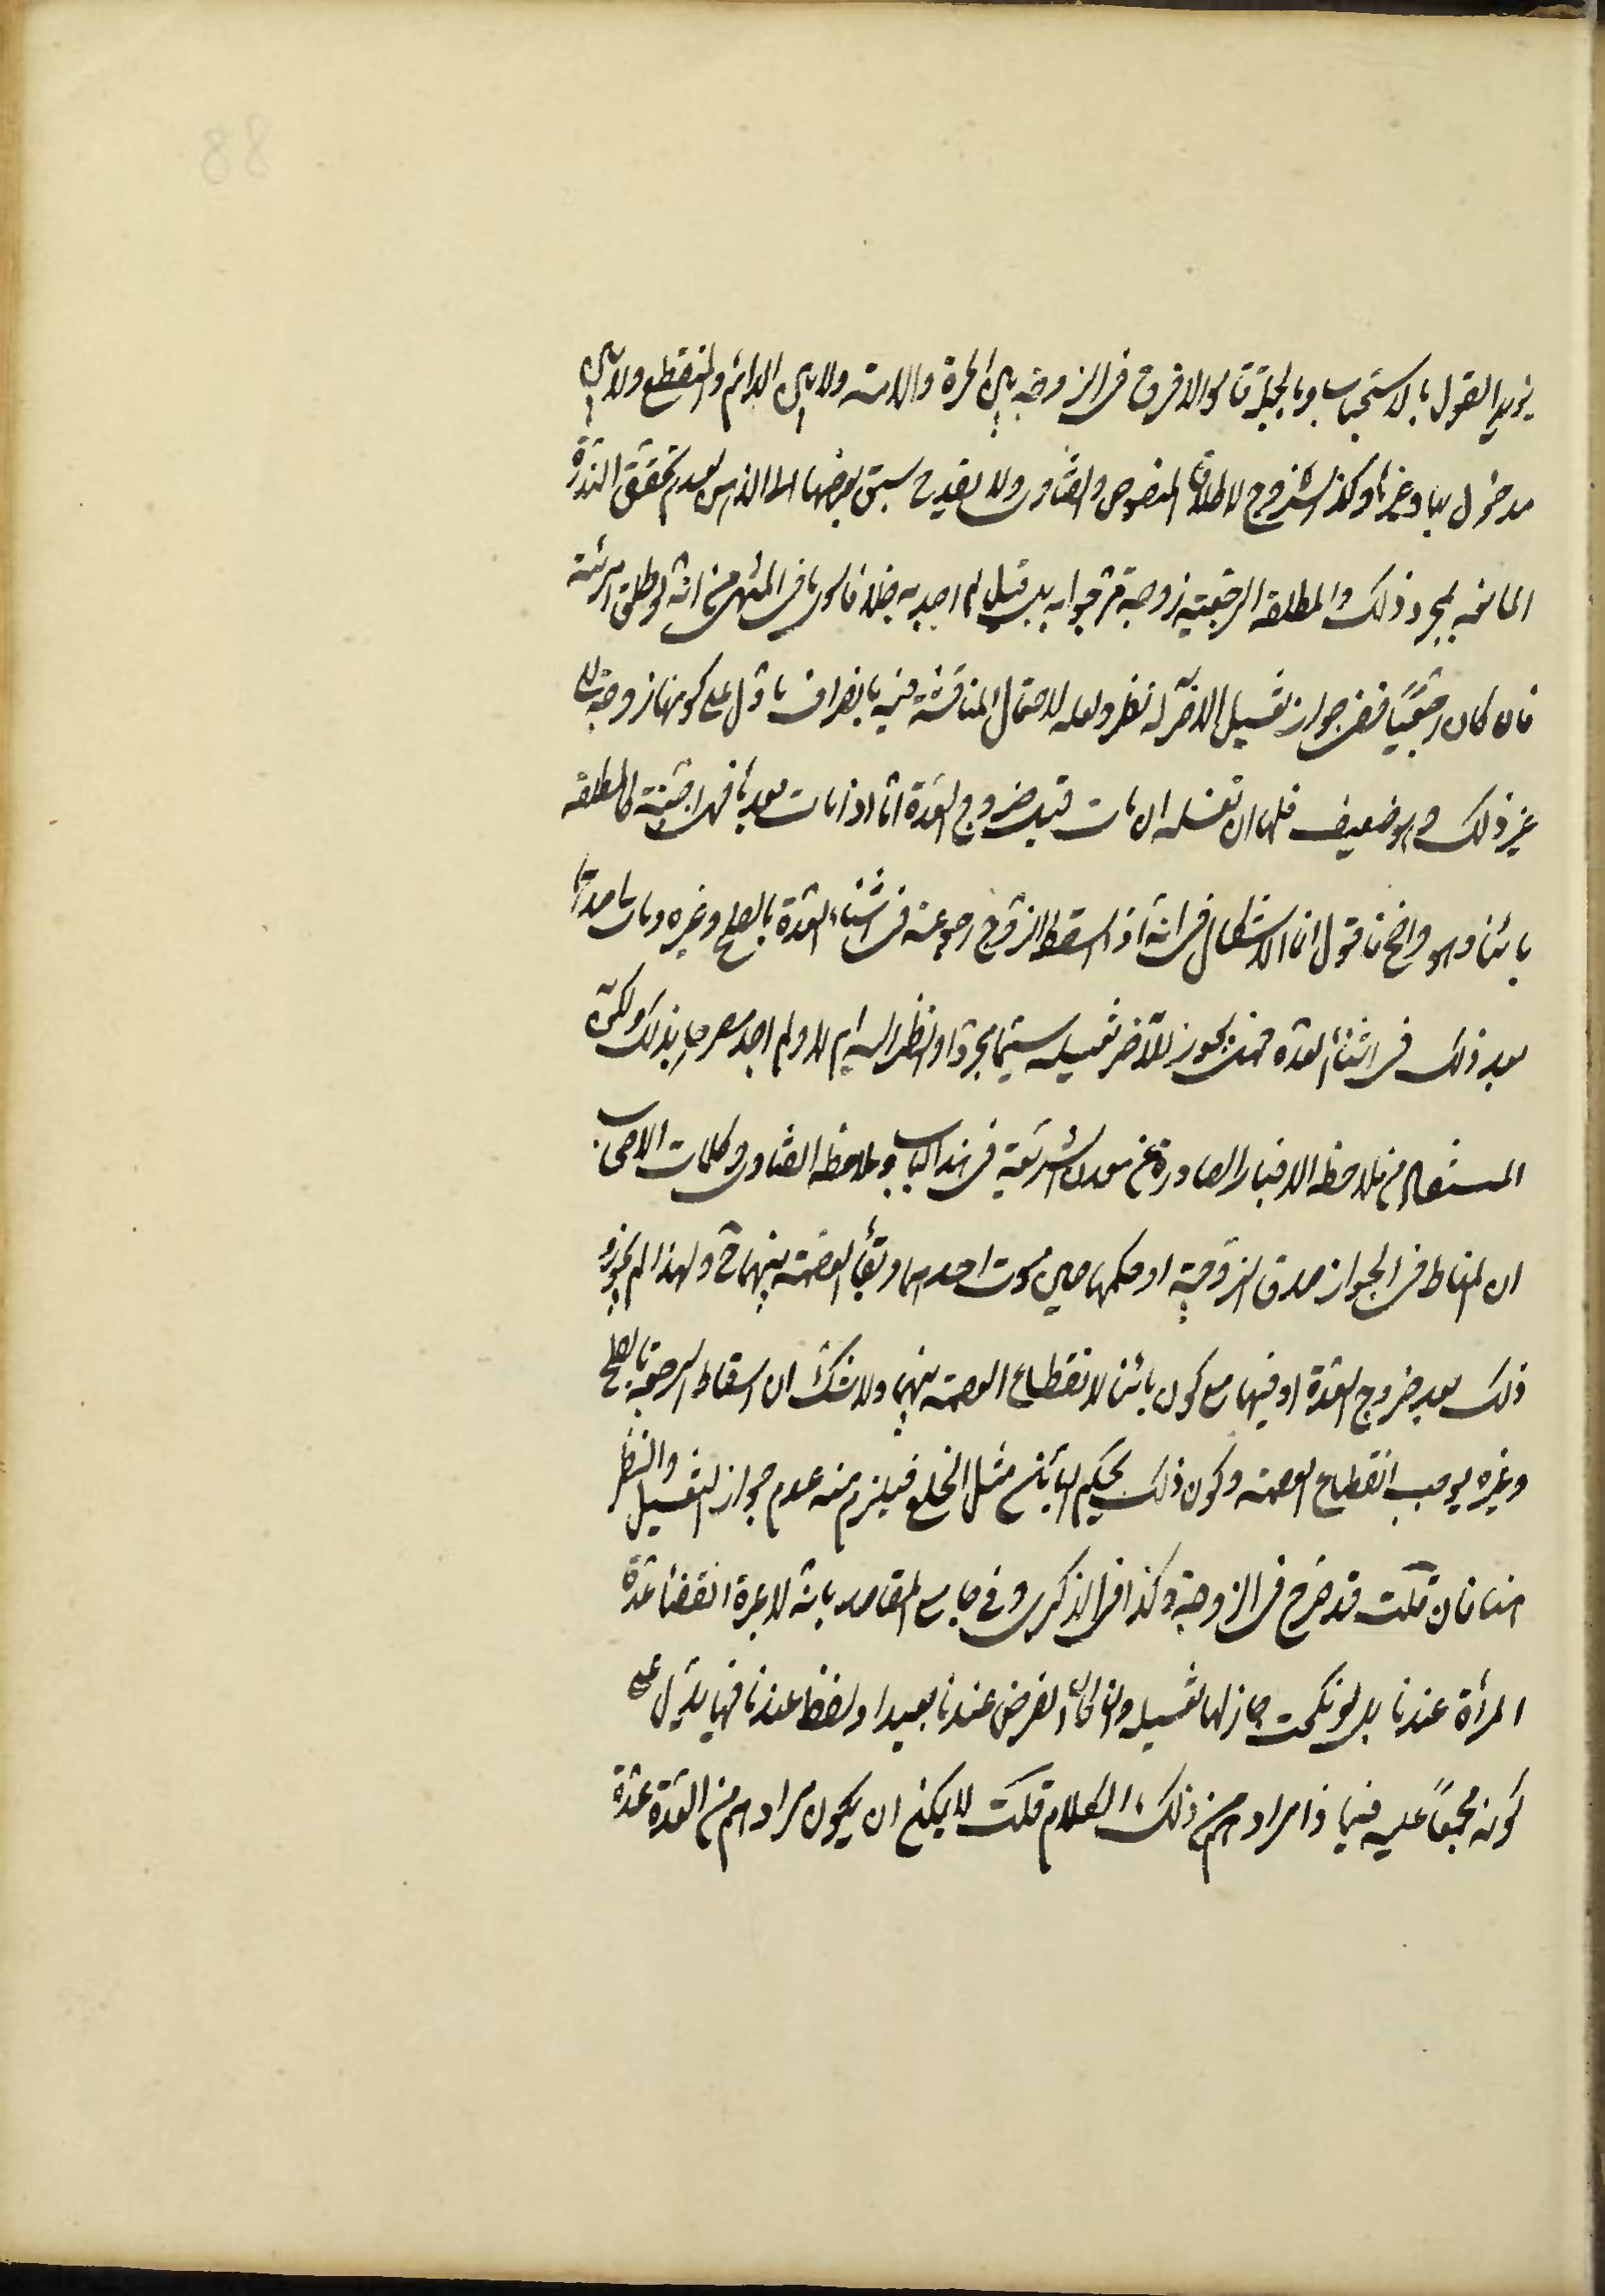 88
يؤيد القول بالاستحباب وبالجملة قالوا لا فرق فى الزوجة بين الحرة والامة ولا بين الدائم والمنقطع ولا بين
مدخول بها وغيرها وكذا الزوج لاطلاق النصوص والفتاوى ولا يقدح سبق بعضها الى الذهن لعدم تحقق الندرة
المانعة بمجرد ذلك والمطلقة الرجعية زوجة بل قيل لم اجد به خلافا لكن فى المنتهى من انه لو طلق امرئته
فان كان رجعيا ففى جواز تغسيل الاخر له نظر ولعله لاحتمال المناقشة فيه بانصراف ما دل على كونها زوجة الى
غير ذلك وهو ضعيف فلها ان تغسله ان مات قبل خروج العدة اما اذا مات بعدها فهى اجنبية كالمطلقة
بائنا وهو واضح فاقول انما الاشكال فى انه اذا اسقط الزوج رجوعه فى اثناء العدة بالصلح وغيره ومات احدهما
بعد ذلك فى اثناء العدة فهل يجوز للآخر تغسيله سيما مجردا والنظر اليه ام لا ولم اجد مصرحا بذلك ولكن
المستفاد من ملاحظه الاخبار الصادرة عن معدن الشريعة فى هذا الباب وملاحظه الفتاوى وكلمات الاصحاب
ان المناط فى الجواز صدق الزوجية او حكمها حين موت احدهما وبقاء العصمة بينهما ح ولهذا لم يجوزوا
ذلك بعد خروج العدة او فيها مع كون بائنا لانقطاع العصمة بينهما ولا شك ان اسقاط الرجعة بالصلح
وغيره يوجب انقطاع العصمة وكون ذلك بحكم البائن مثل الخلع فيلزم منه عدم جواز التغسيل والنظر
هنا فان قلت قد خرج فى الزوجة وكذا فى الذكرى وفى جامع المقاصد بانه لا عبرة انقضاء عدة
المرأة عندنا بل لو نكحت جاز لها تغسيله وان كان الفرض عندنا بعيدا ولفظ عندنا فيها يدل على
كونه مجمعا عليه فيما ذا مرادهم من ذلك الكلام قلت لا يمكن ان يكون مرادهم من العدة عدة